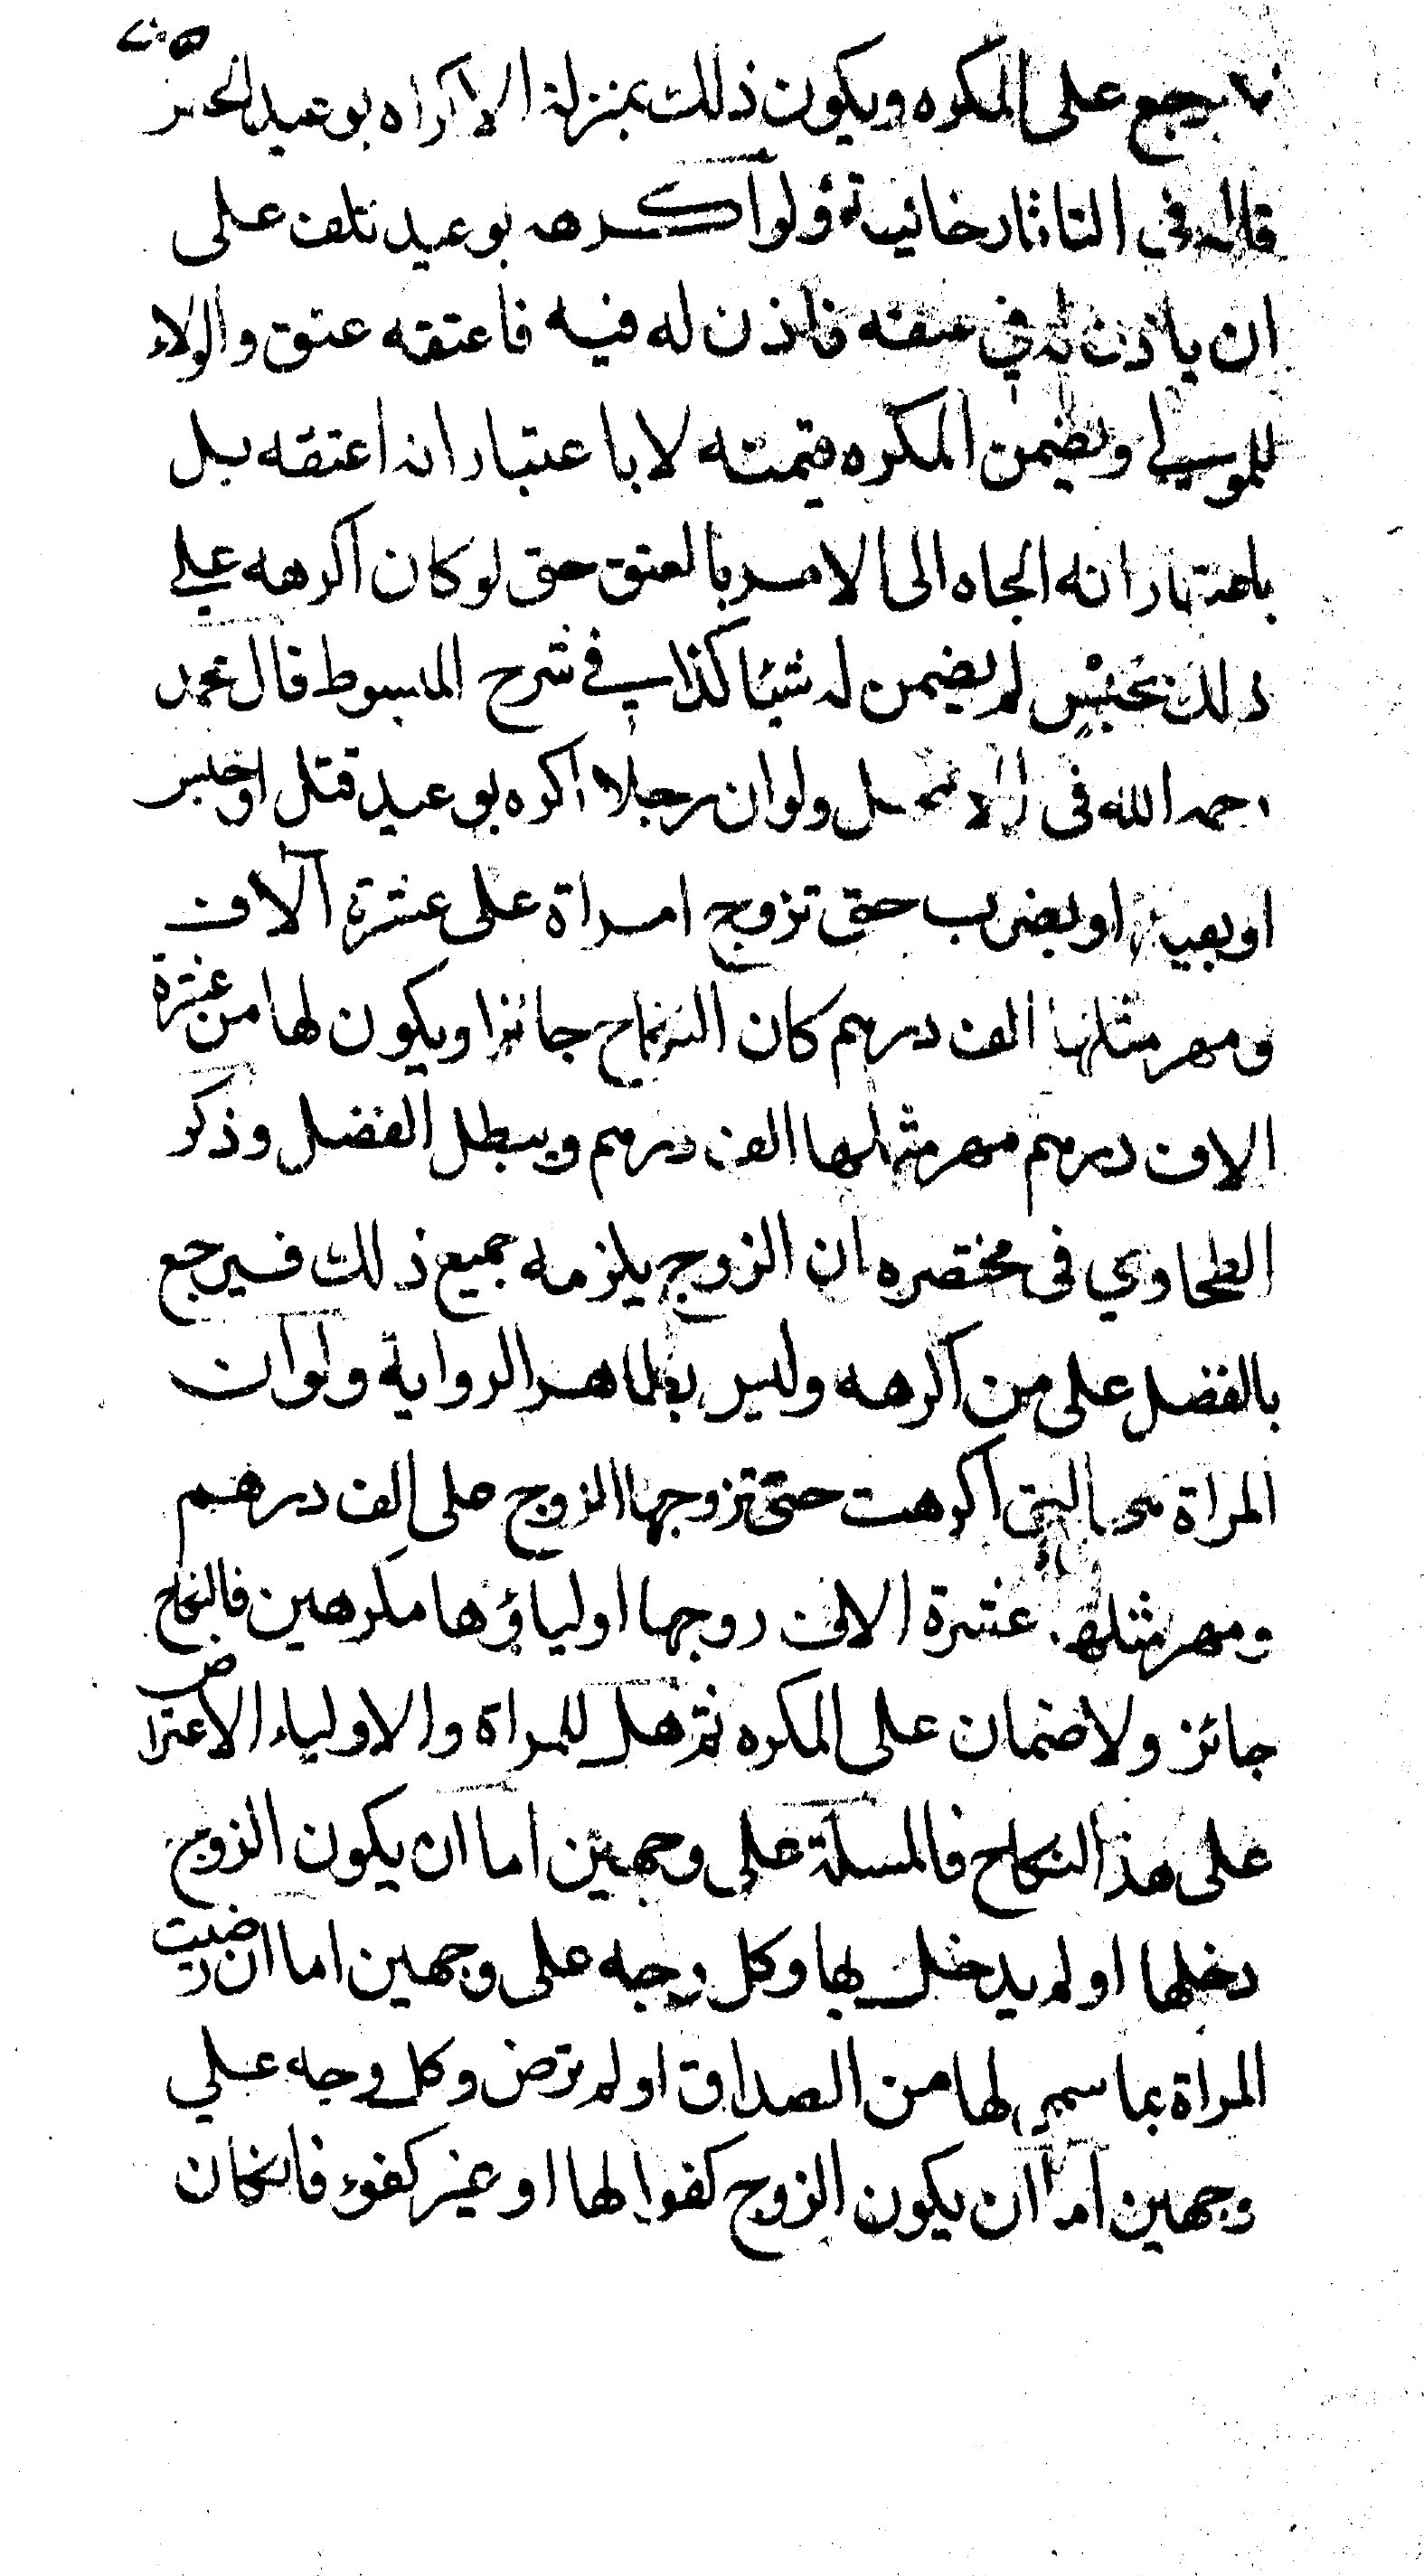 يرجع على المكره ويكون ذلك بمنزلة الاكراه بوعيد الحبس
قاله فى التاتارخانية ولو اكرهه بوعيد تلف على
ان ياذن له في عتقه فاذن له فيه فاعتقه عتق والولاء
للمولي ويضمن المكره قيمته لا باعتبار انه اعتقه بل
باعتبار انه الجاه الى الامر بالعتق حتى لو كان اكرهه علي
ذلك بحبس لم يضمن له شيئا كذا في شرح المبسوط قال محمد
رحمه الله فى الاصل ولو ان رجلا اكره بوعيد قتل او حبس
او بقيد او بضرب حتى تزوج امراة على عشرة آلاف
ومهر مثلها الف درهم كان النكاح جائزا ويكون لها من عشرة
الاف درهم مهر مثلها الف درهم ويبطل الفضل وذكر
الطحاوي فى مختصره ان الزوج يلزمه جميع ذلك فيرجع
بالفضل على من اكرهه وليس بظاهر الرواية ولو ان
المراة هى التى اكرهت حتى تزوجها الزوج على الف درهم
ومهر مثلها عشرة الاف زوجها اولياؤها مكرهين فالنكاح
جائز ولا ضمان على المكره ثم هل للمراة والاولياء الاعتراض
على هذا النكاح فالمسلة على وجهين اما ان يكون الزوج
دخلها او لم يدخل بها وكل وجه على وجهين اما ان رضيت
المراة بما سمى لها من الصداق او لم ترض وكل وجه علي
وجهين اما ان يكون الزوج كفوا لها او غير كفوء فان كان